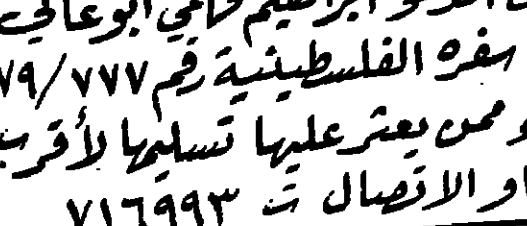 ابراهيم فهمي ابوعالي
سفره الفلسطينية رقم ٧٩/٧٧٧
وممن يعثر عليها تسليمها لأقرب
او الاتصال ت ٧١٦٩٩٣